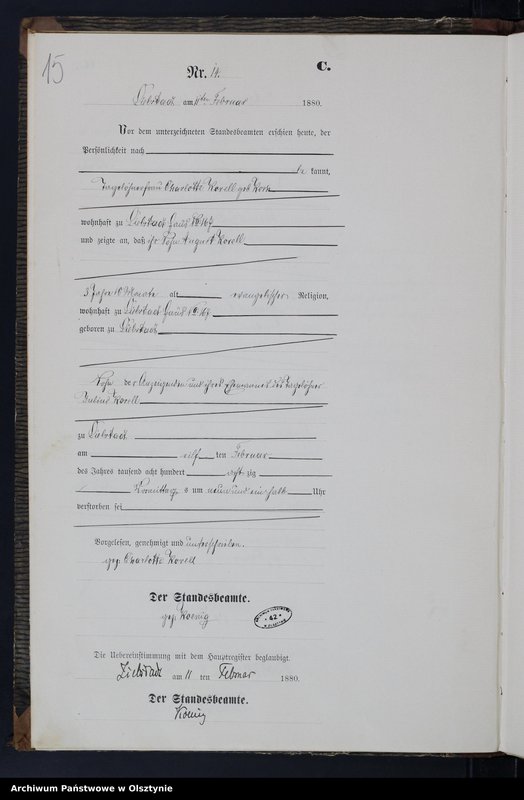 15
C.
Nr. 14.
Liebstadt am 11ten Februar 1880.
Vor dem unterzeichneten Standesbeamten erschien heute, der
Persönlichkeit nach
be kannt,
Tagelöhnerfrau Charlotte Korell geb.
wohnhaft zu Liebstadt Haus № 164
und zeigte an, daß ihr Sohn August Korell
3 Jahre 10 Monate alt evangelischer Religion,
wohnhaft zu Liebstadt Haus № 164
geboren zu Liebstadt
Sohn der Anzeigenden und ihres Ehemannes des Tagelöhner
Julius Korell
zu Liebstadt
am elf ten Februar
des Jahres tausend acht hundert acht zig
Vormittag s um neun und ein halb Uhr
verstorben sei
Vorgelesen, genehmigt und unterschrieben.
gez Charlotte Korell
Der Standesbeamte.
gez Koenig
42
Die Uebereinstimmung mit dem Hauptregister beglaubigt.
Liebstadt am 11 ten Februar 1880.
Der Standesbeamte.
Koenig
Archiwum Państwowe w Olsztynie